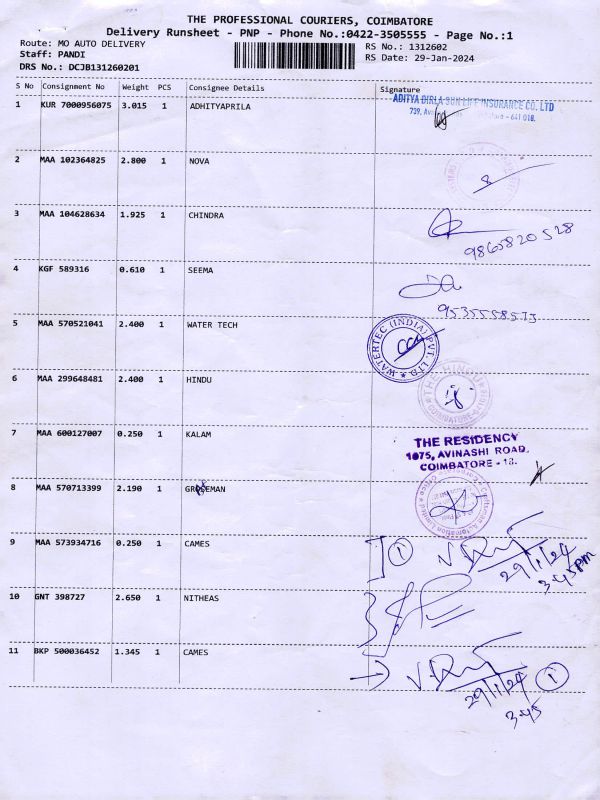 THE PROFESSIONAL COURIERS, COIMBATORE
Delivery Runsheet - PNP - Phone No.:0422-3505555 - Page No.:1
Route: MO AUTO DELIVERY
RS No.: 1312602
Staff: PANDI
RS Date: 29-Jan-2024
DRS No.: DCJB131260201
S No Consignment No Weight PCS Consignee Details Signature
1 KUR 7000956075 3.015 1 ADHITYAPRILA
ADITYA BIRLA SUN LIFE INSURANCE CO. LTD
739, - 641 018.
2 MAA 102364825 2.800 1 NOVA
3 MAA 104628634 1.925 1 CHINDRA
9865820528
4 KGF 589316 0.610 1 SEEMA
9535558573
5 MAA 570521041 2.400 1 WATER TECH
WATERTEC (INDIA) PVT. LTD.
6 MAA 299648481 2.400 1 HINDU
THE HINDU
COIMBATORE
7 MAA 600127007 0.250 1 KALAM
THE RESIDENCY
1075, AVINASHI ROAD,
COIMBATORE - 18.
8 MAA 570713399 2.190 1 GROSEMAN
9 MAA 573934716 0.250 1 CAMES
1
29/1/24
3.45 PM
10 GNT 398727 2.650 1 NITHEAS
11 BKP 500036452 1.345 1 CAMES
29/1/24 1
3.45